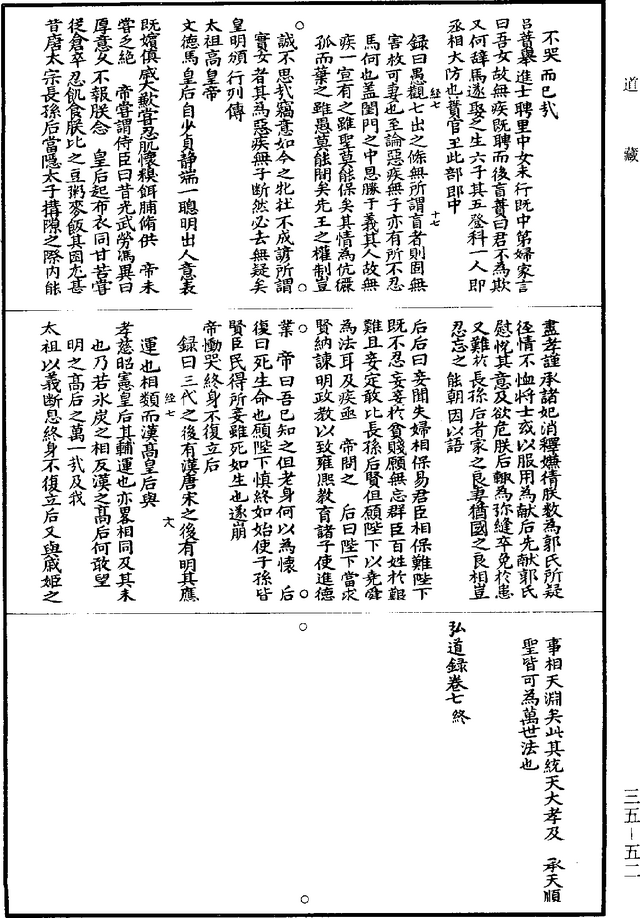 道藏
不哭而已哉
呂蕡舉進士聘里中女未行既中第婦家言
曰吾女故無疾既聘而後盲蕡曰君不為欺
又何辭焉遂娶之生六子其五登科一人即
丞相大防也蕡官王此部郎中
錄曰愚觀七出之條無所謂盲者則固無
害故可妻也至論惡疾無子亦有所不忍
焉何也盖閨門之中恩勝于義其人故無
疾一宣有之雖聖莫能保矣其情為伉儷
孤而棄之雖愚莫能閒矣先王之權制豈
經七 十七
誠不思哉竊意如今之牝社不成諺所謂
實女者其為惡疾無子斷然必去無疑矣
皇明頒行列傳
太祖高皇帝
文德馬皇后自少貞靜端一聰明出人意表
既嬪值歲大歉嘗忍肌懷糗餌脯脩供 帝未
嘗乏絶 帝嘗謂侍臣曰昔光武勞馮異曰
厚意久不報朕念 皇后起布衣同甘苦嘗
從倉卒忍飢食朕比之豆粥麥飯其困尤甚
昔唐太宗長孫后當隱太子搆隙之際內能
盡孝謹承諸妃消釋嫌猜朕數為郭氏所疑
徑情不恤將士或以服用為献后先献郭氏
慰悅其意及欲危朕后輙為弥縫卒免於患
又難於長孫后者家之良妻猶國之良相豈
忍忘之能朝因以語
后后曰妾聞夫婦相保易君臣相保難陛下
既不忍妾妾於貧賤願無忘群臣百姓於艱
難且妾定敢比長孫后賢但願陛下以堯舜
為法耳及疾亟 帝問之 后曰陛下當求
賢納諫明政教以致雍熙教育諸子使進德
業 帝曰吾已知之但老身何以為懷 后
復曰死生命也願陛下慎終如始使子孫皆
賢臣民得所妾雖死如生也遂崩
帝慟哭終身不復立后
錄曰三代之後有漢唐宋之後有明其應
經七 六
運也相類而漢高皇后與
孝慈昭憲皇后其輔運也亦畧相同及其末
也乃若氷炭之相反漢之高后何敢望
明之高后之萬一哉及我
太祖以義斷恩終身不復立后又與戚姬之
事相天淵矣此其統天大孝及 承天順
聖皆可為萬世法也
弘道録卷七終
三五–五二